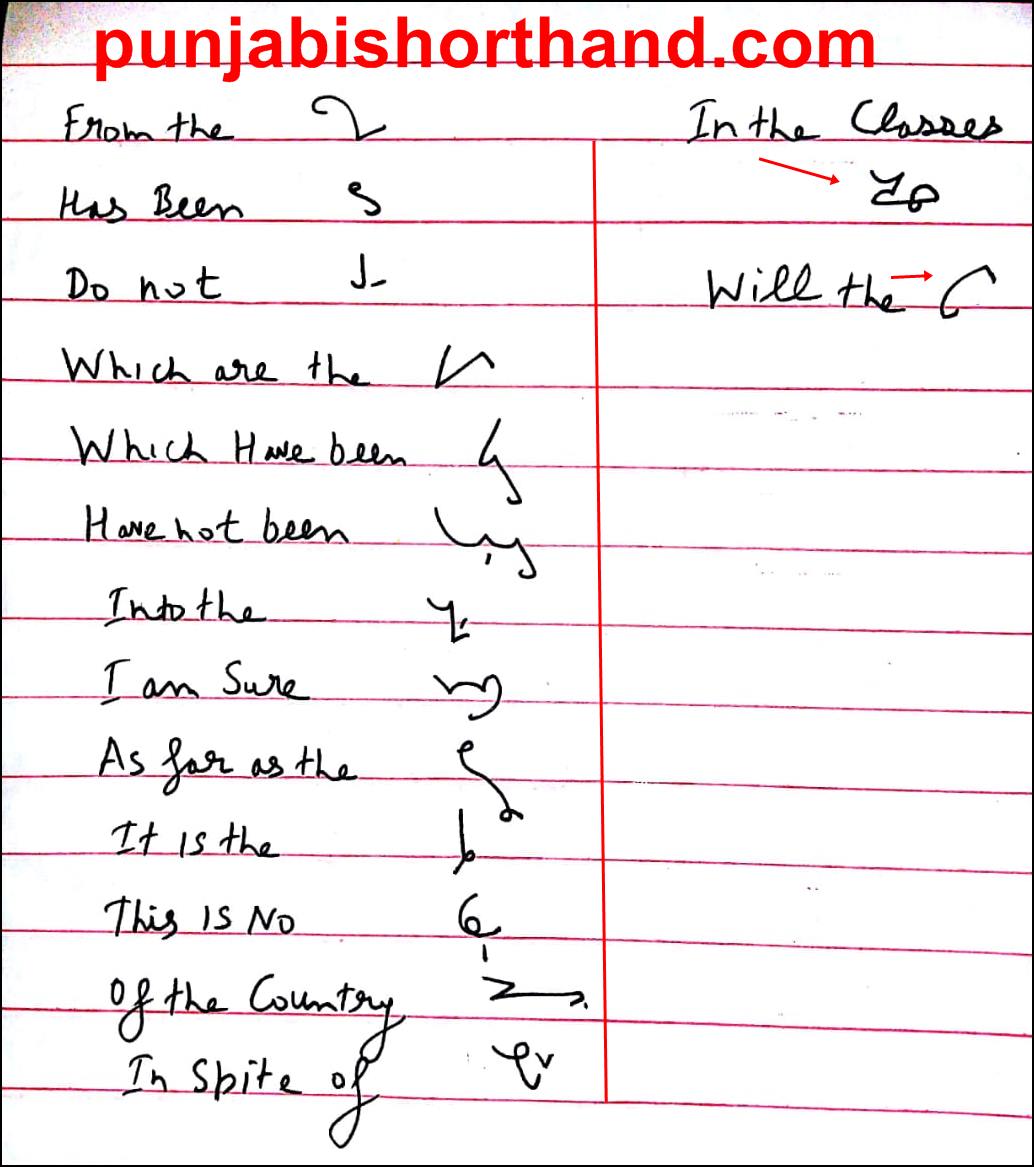 punjabishorthand.com
From the
Has Been
Do not
Which are the
Which Have been
Have not been
Into the
I am Sure
As far as the
It is the
This is No
Of the Country
In Spite of
In the Classes
Will the